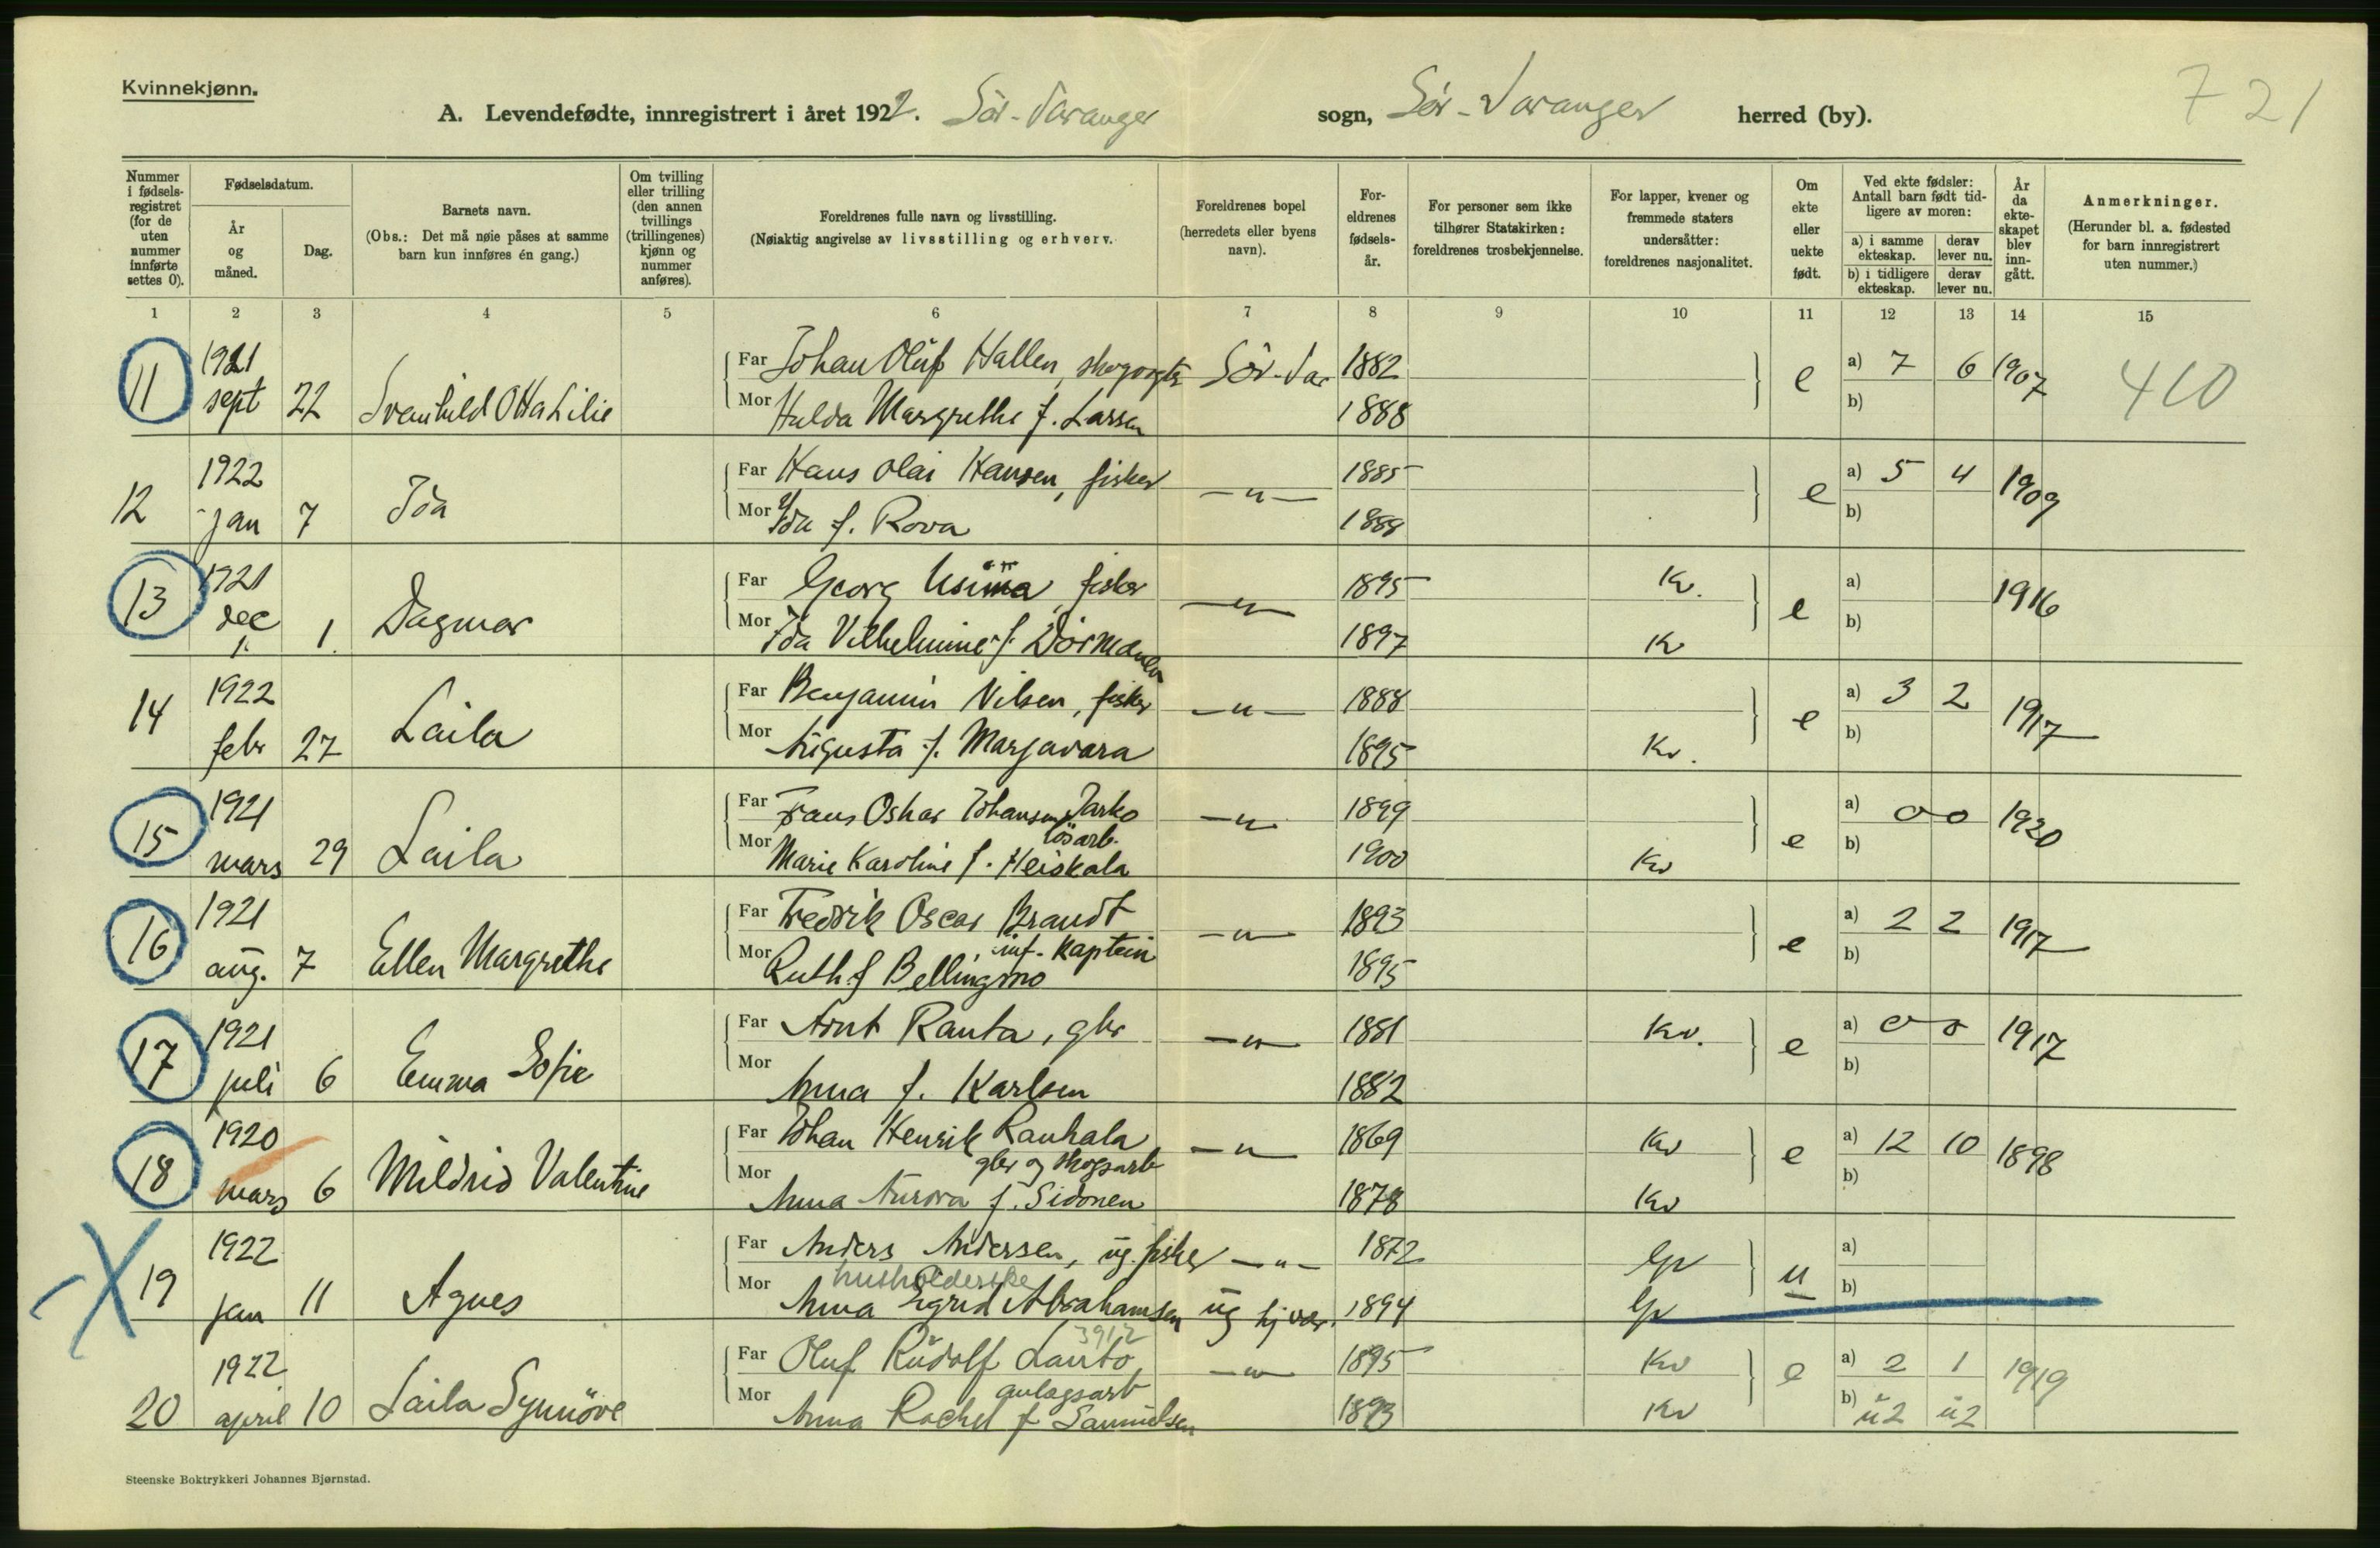 Kvinnekjønn.
A. Levendefødte, innregistrert i året 1922. Sör-Varanger sogn, Sör-Varanger herred (by).
7 21
Nummer i fødsels-registret (for de uten nummer innførte settes 0).
Fødselsdatum.
År og måned.
Dag.
Barnets navn.
(Obs.: Det må nøie påses at samme barn kun innføres én gang.)
Om tvilling eller trilling (den annen tvillings (trillingenes) kjønn og nummer anføres).
Foreldrenes fulle navn og livsstilling.
(Nøiaktig angivelse av livsstilling og erhverv.
Foreldrenes bopel (herredets eller byens navn).
For-eldrenes fødsels-år.
For personer som ikke tilhører Statskirken: foreldrenes trosbekjennelse.
For lapper, kvener og fremmede staters undersåtter: foreldrenes nasjonalitet.
Om ekte eller uekte født.
Ved ekte fødsler: Antall barn født tid-ligere av moren:
a) i samme ekteskap.
derav lever nu.
b) i tidligere ekteskap.
derav lever nu.
År da ekte-skapet blev inn-gått.
Anmerkninger.
(Herunder bl. a. fødested for barn innregistrert uten nummer.)
1 2 3 4 5 6 7 8 9 10 11 12 13 14 15
11 1921 sept 22 Svanhild Otta Lilie
Far Johan Oluf Hallen, skogvogter Sör-Var 1882 e a) 7 6 1907 410
Mor Hulda Margrethe f. Larsen 1888 b)
12 1922 jan 7 Ida
Far Hans Olai Hansen, fisker —"— 1885 e a) 5 4 1909
Mor Ida f. Rova 1889 b)
13 1921 dec 1. 1.
Dagmar
Far Georg Usima, fisker —"— 1895 Kv. e a) 1916
Mor Ida Vilhelmine f. Dörmænen 1897 Kv b)
14 1922 febr 27 Laila
Far Benjamin Nilsen, fisker —"— 1888 e a) 3 2 1917
Mor Augusta f. Marjavara 1895 Kv. b)
15 1921 mars 29 Laila
Far Frans Oskar Johansen Jarko —"— 1899 e a) 0 0 1920
lösarb.
Mor Marie Karoline f. Heiskala 1900 Kv b)
16 1921 aug. 7 Ellen Margrethe
Far Fredrik Oscar Brandt —"— 1893 e a) 2 2 1917
inf. kaptein
Mor Ruth f Bellingmo 1895 b)
17 1921 juli 6 Emma Sofie
Far Arnt Ranta, gbr —"— 1881 Kv. e a) 0 0 1917
Mor Anna f. Karlsen 1882 b)
18 1920 mars 6 Mildrid Valentine
Far Johan Henrik Rauhala —"— 1869 Kv e a) 12 10 1898
gbr og skogsarb
Mor Anna Aurora f. Sidonen 1878 Kv b)
19 1922 jan 11 Agnes
Far Anders Andersen, ug. fisker —"— 1872 lp u a)
husholderske
Mor Anna Sigrid Abrahamsen ug hj vær. 1894 lp b)
3912
20 1922 april 10 Laila Synnöve
Far Oluf Rudolf Lauto, —"— 1895 Kv e a) 2 1 1919
anlagsarb
Mor Anna Rachel f Samuelsen 1893 Kv b) u2 u2
Steenske Boktrykkeri Johannes Bjørnstad.